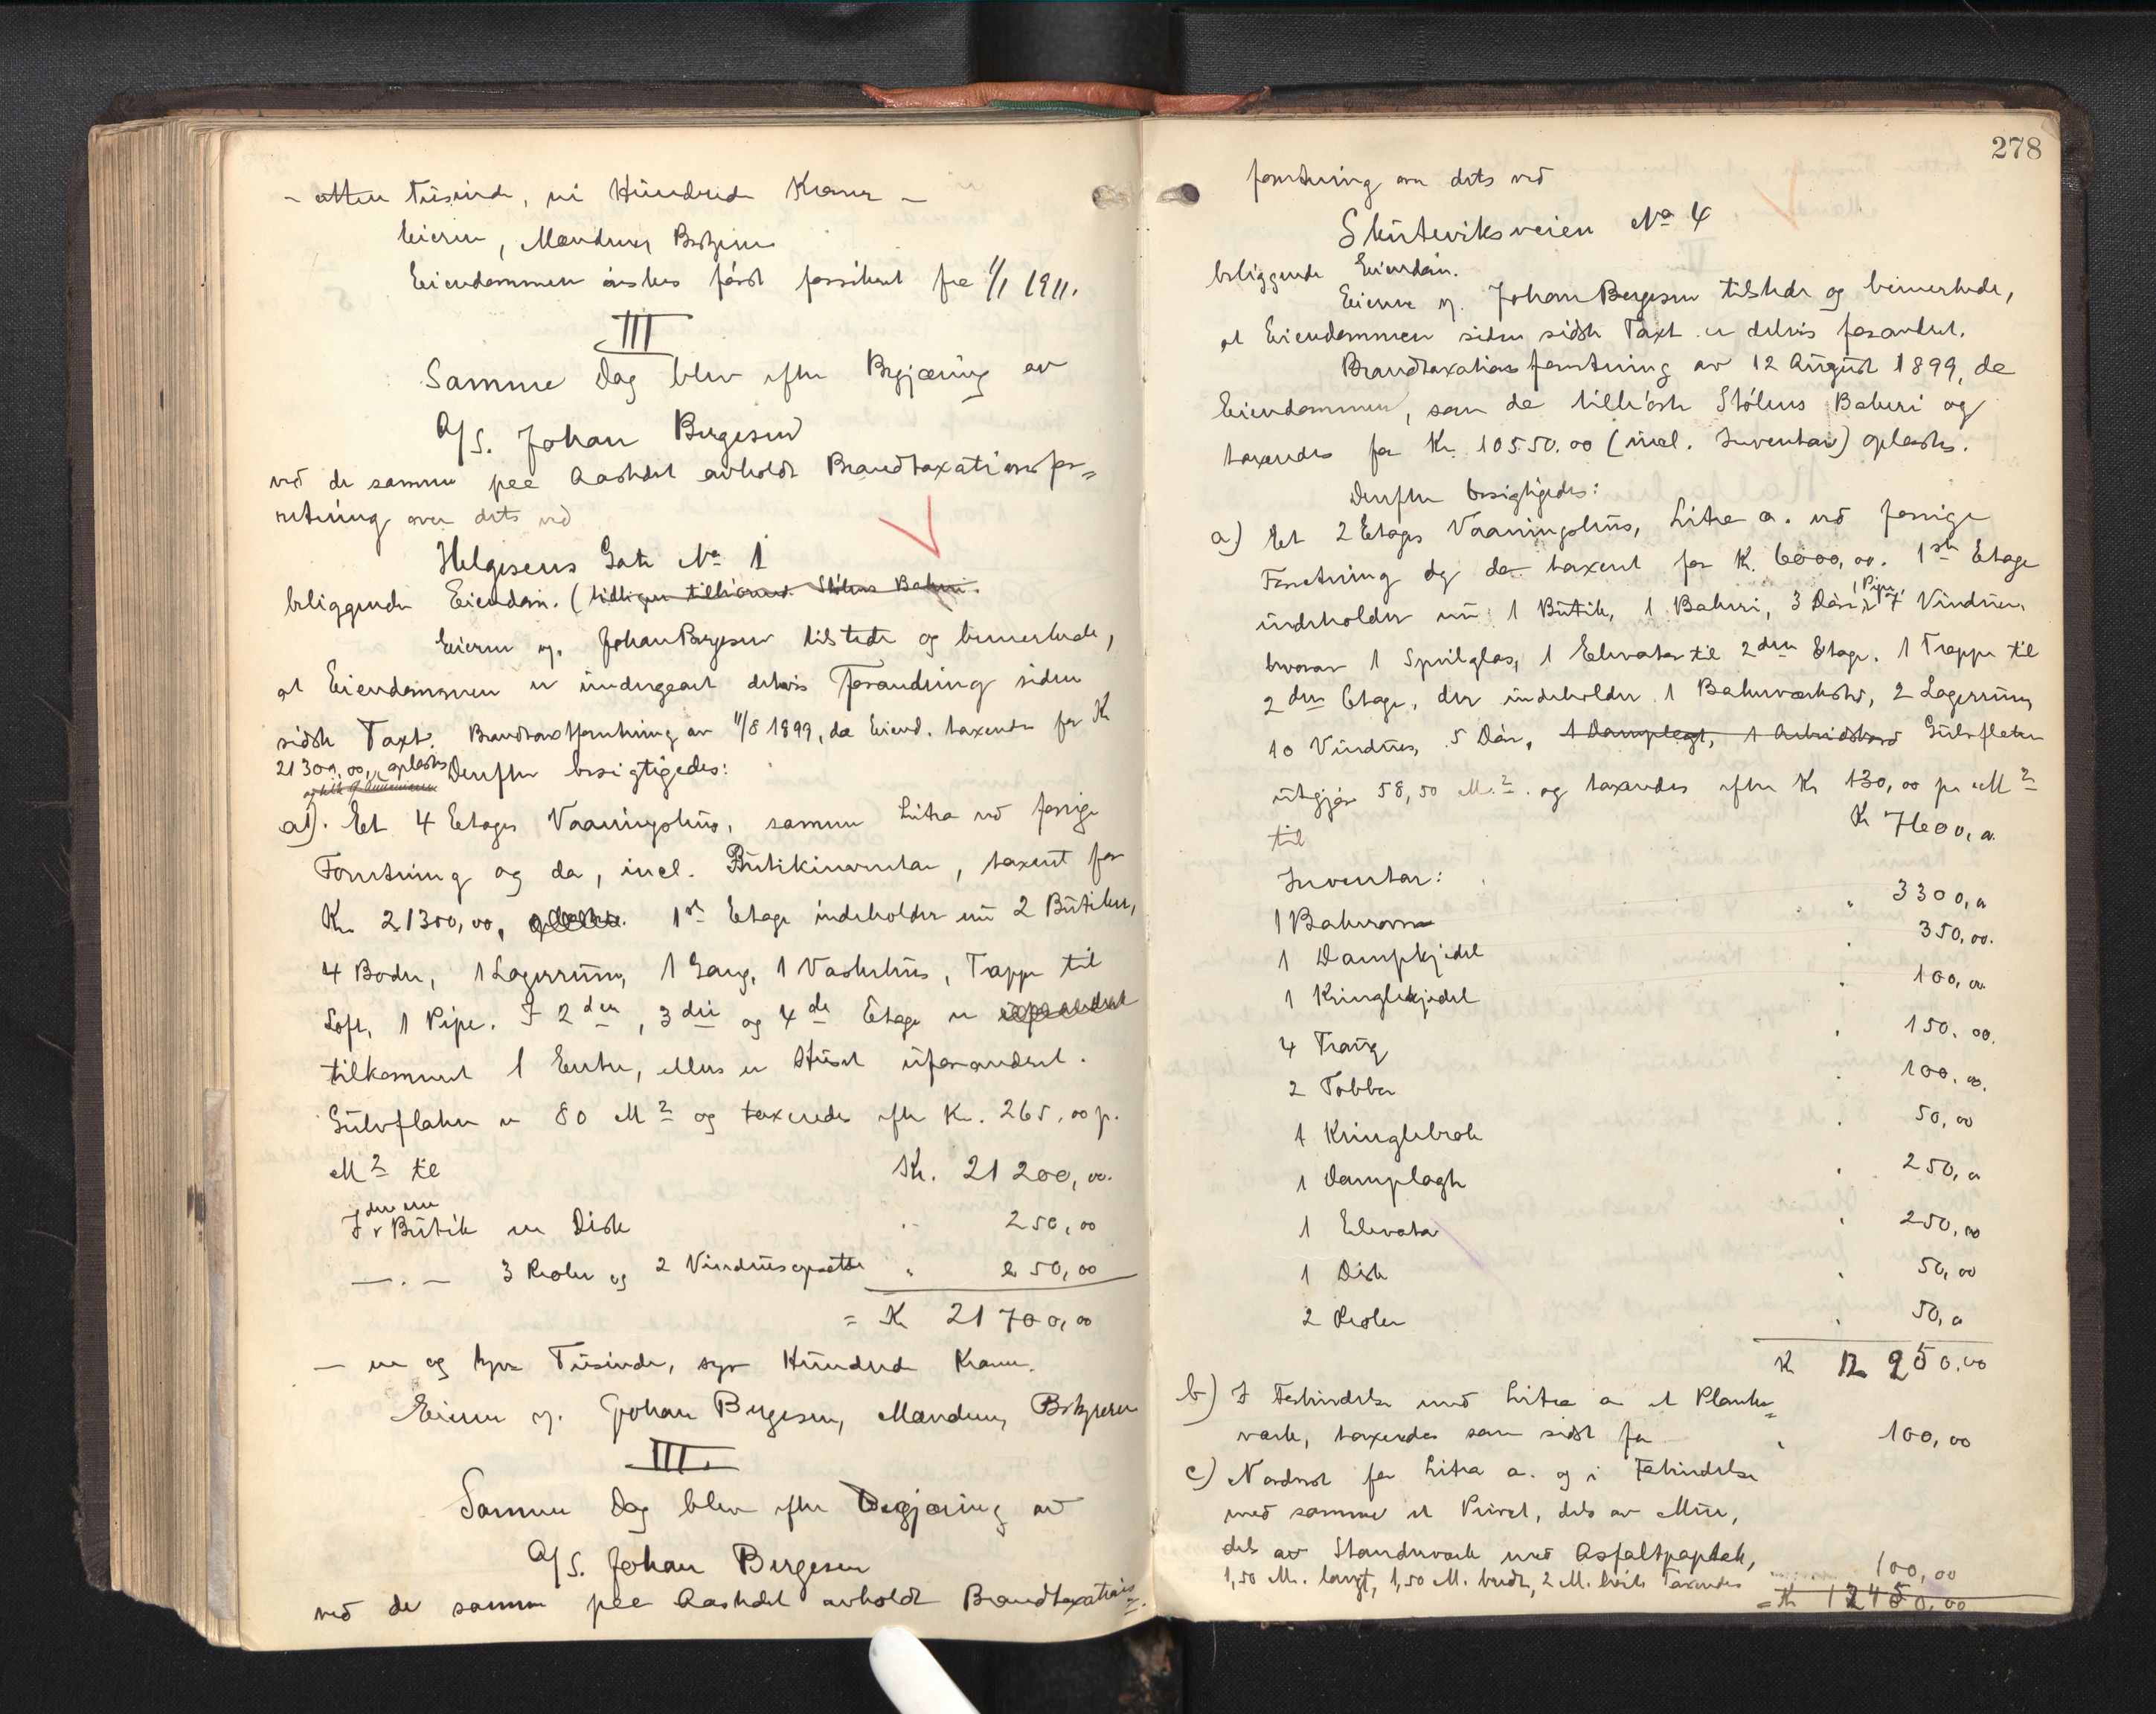 - atten Tusinde, ni Hundrede Kroner -
Eieren, Mændene, Bestyreren
Eiendommen ønskes først forsikret fra 1/1 1911.
III
Samme Dag blev efter Begjæring av
A/S. Johan Bergesen
ved de samme paa Aastedet avholdt Brandtaxationsfor=
retning over dets ved
Helgesens Gate No 1
beliggende Eiendom. (tidligere tilhørende Stølens Bakeri.
Eieren v. Johan Bergesen tilstede og bemerkede,
at Eiendommen er undergaaet delvis Forandring siden
sidste Taxt. Brandtaxtforretning av 11/8 1899, da Eiend. taxertes for Kr
21300,00, oplæstes
Derefter besigtigedes:
a). Et 4 Etages Vaaningshus, samme Litra ved forrige
Forretning og da, incl. Butikinventar, taxert for
Kr. 21300,00, 1ste Etage indeholder nu 2 Butiker,
4 Boder, 1 Lagerrum, 1 Gang, 1 Vaskehus, Trappe til
Loft, 1 Pipe. I 2den, 3die og 4de Etage er
tilkommet 1 Entre, ellers er Huset uforandret.
Gulvflaten er 80 M2 og taxeredes efter Kr. 265,00 p.
M2 til Kr. 21200,00.
I den ene Butik en Disk " 250,00
—"— 3 Reoler og 2 Vinduesopsatser " 250,00
= Kr 21700,00
— en og tyve Tusinde, syv Hundrede Kroner.
Eieren v. Johan Bergesen, Mændene, Bestyreren
III.
Samme Dag blev efter Begjæring av
A/S. Johan Bergesen
ved de samme paa Aastedet avholdt Brandtaxations=
278
forretning over dets ved
Skuteviksveien No 4
beliggende Eiendom.
Eieren v. Johan Bergesen tilstede og bemerkede,
at Eiendommen siden sidste Taxt er delvis forandret.
Brandtaxationsforretning av 12 August 1899, da
Eiendommen, som da tilhørte Stølens Bakeri og
taxertes for Kr. 10550.00 (incl. Inventar) oplæstes.
Derefter besigtigedes:
a) Et 2 Etages Vaaningshus, Litra a. ved forrige
Forretning og da taxert for K. 6000,00. 1ste Etage
indeholder nu 1 Butik, 1 Bakeri, 3 Dører, 1 Pipe, 7 Vinduer,
hvorav 1 Speilglas, 1 Elevator til 2den Etage. 1 Trappe til
2den Etage, der indeholder 1 Bakerværksted, 2 Lagerrum,
10 Vinduer, 5 Dører, 1 Damplagt, 1 Arbidsbord Gulvflaten
utgjør 58,50 M.2. og taxeredes efter Kr 130,00 pr M2
til Kr 7600,00.
Inventar:
1 Bakerovn " 3300,00
1 Dampkjedel " 350,00.
1 Kringlekjedel " 100,00
4 Traug " 150.00.
2 Tobber " 100,00.
1 Kringlebrak " 50,00
1 Damplagte " 250,00
1 Elevator " 250,00
1 Disk " 50,00
2 Reoler " 50,00
K 12250,00
b) I Forbindelse med Litra a et Planke=
værk, taxeredes som sidst for " 100,00
c) Nordvest for Litra a. og i Forbindelse
med samme et Privet, dels av Mur,
dels av Standerværk med Asfaltpaptak,
1,50 M. langt, 1,50 M. bredt, 2 M. høit. Taxeredes 100,00
= Kr 12450,00